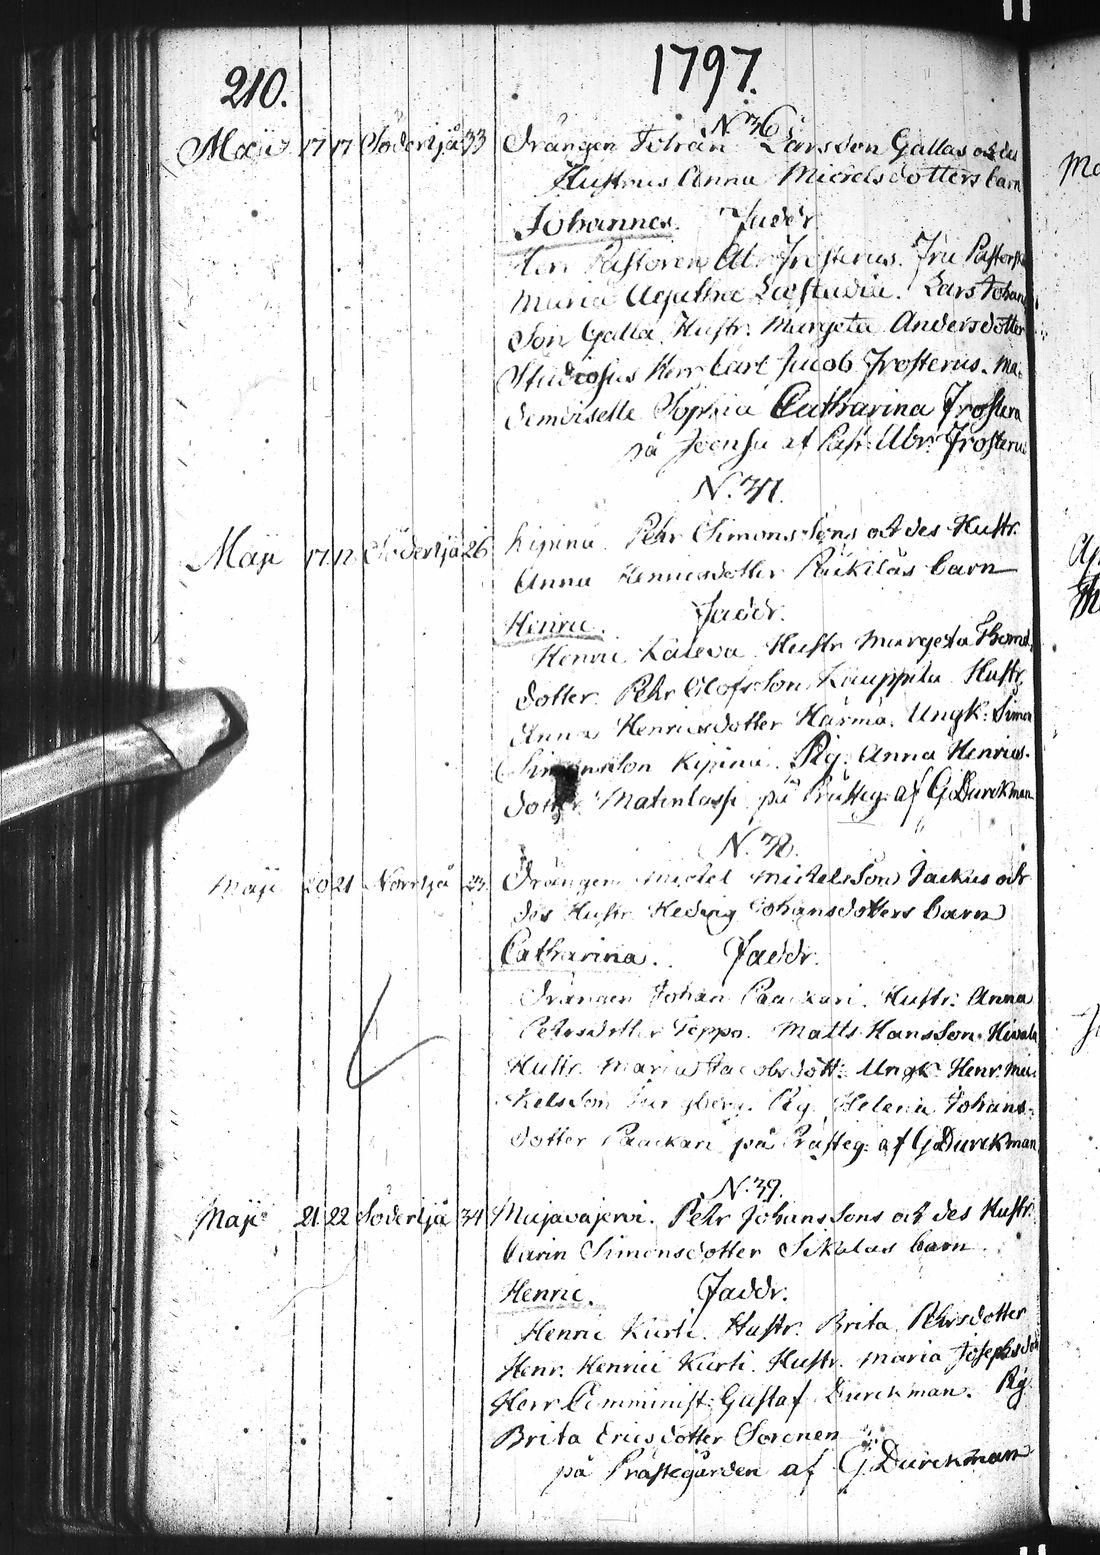 210.
1797.
N. 36.
Maij 17 17 Söderbyå 33 Drängen Johan Larsson Gallas och des
Hustrus Anna Michelsdotters barn
Johannes. Faddr.
Herr Pastoren Abr. Frosterus. Fru Pastorsk.
Maria Agatha Læstadia. Lars Johans
Son Galla. Hustr. Margeta Andersdotter
Studiosus Herr Carl Jacob Frosterus. Ma-
demoiselle Sophia Catharina Frostera
på Joensu af Past. Abr. Frosterus
N. 37.
Maji 17 17 26 Kipinä. Pehr Simonssons och des Hustr.
Anna Henricsdotter barn
Henric. Faddr.
Henric Kaleva. Hustr. Margeta Thoms
dotter. Pehr Olofsson Kauppila. Hustr.
Anna Henricsdotter Härmä. Ungk: Simon
Simonsson Kipinä. Pig. Anna Henrics-
dotter Matinlassi på Prästeg. af G. Durchman
N. 38.
Maji 20 21 23. Drängen Michel Michelsson Jackus och
des Hustr. Hedvig Johansdotters barn
Catharina. Faddr.
Drängen Johan Paackari. Hustr. Anna
Pehrsdotter Teppo. Matts Hansson
Hustr. Maria Jacobsdott: Ungk: Henr. Mi-
kelsson Pig. Helena Johans-
dotter Paackari på Prästeg. af G. Durchman
N. 39.
Maji 21 22 34 Mujavajervi. Pehr Johanssons och des Hustr.
Carin Simonsdotter Sikalas barn
Henric. Faddr.
Henric Kurti. Hustr. Brita Pehrsdotter
Henr. Henrici Kurti. Hustr. Maria Josephsdott
Herr Comminist. Gustaf Durchman. Pig.
Brita Ericsdotter Sorenen
på Prästegården af G. Durchman